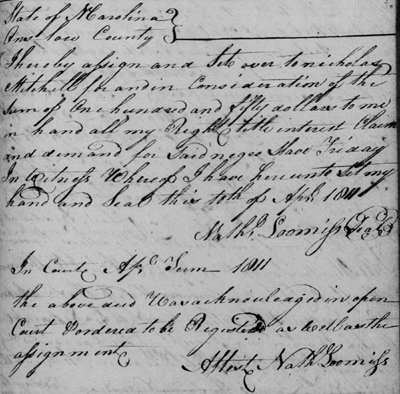 State of N Carolina }
Onslow County }
I hereby assign and Set over to nicholas
Mitchell for and in Consideration of the
Sum of One hundred and fifty dollars to me
in hand all my Right title interest Claim
and demand for Said negro Slave Friday
In Witness Whereof I have hereunto Set my
hand and Seal this 10th of Apr 1811
Nathl Loomiss Seal
In County Apl Term 1811
the above deed Was acknowledged in open
Court & ordered to be Registered as well as the
assignment
Attest Nathl Loomiss